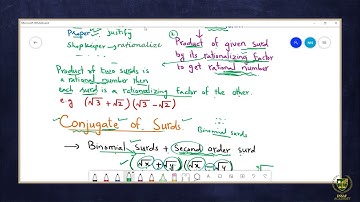 Microsoft Whiteboard
Proper justify
Shopkeeper rationalize
Product of given surd
by its rationalizing factor
to get rational number
Product of two surds is
a rational number then
each surd is a rationalizing factor of the other.
e.g (√3 + √2) (√3 - √2)
Conjugate of Surds.
Binomial surds
→ Binomial Surds + Second order surd
(√x + √y) (√x - √y)